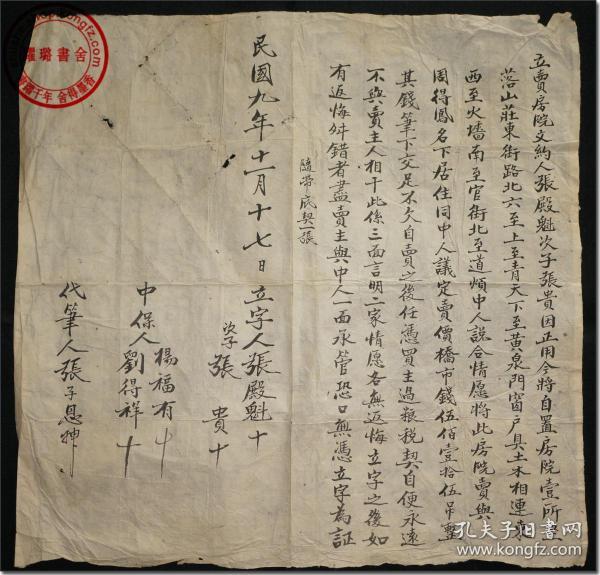 立賣房院文約人張殿魁次子張貴因正用今將自置房院壹所坐
落山莊東街路北六至上至青天下至黃泉門窗戶具土木相連東
西至火墻南至官街北至道煩中人說合情愿將此房院賣與
周得鳳名下居住同中人議定賣價橋市錢伍佰壹拾伍吊整
其錢筆下交足不欠自賣之後任憑買主過粮稅契自便永遠
不與賣主人相干此係三面言明二家情愿各無返悔立字之後如
有返悔舛錯者盡賣主與中人一面承管恐口無憑立字為証
隨帶底契一張
民國九年十一月十七日立字人張殿魁十
次子張貴十
中保人楊福有十
劉得祥十
代筆人張子恩押
璐書舍
千年舍得墨香
孔夫子旧书网
www.kongfz.com